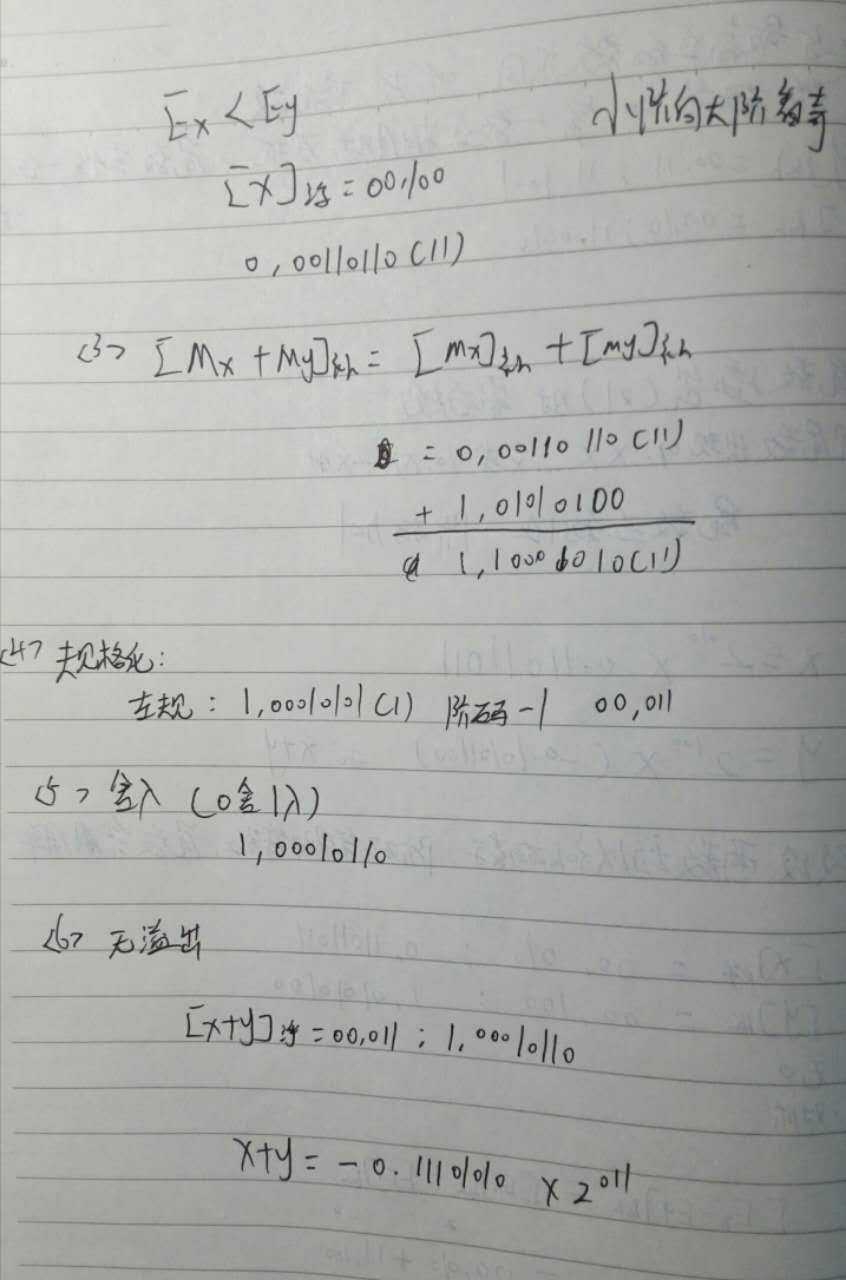 Ex < Ey 小阶向大阶看齐
[X]浮 = 00,100
0,00110110(11)
<3> [Mx + My]补 = [Mx]补 + [My]补
= 0,00110110(11)
+ 1,01010100
1,10001010(11)
<4> 规格化:
左规: 1,00010101(1) 阶码-1 00,011
<5> 舍入 (0舍1入)
1,00010110
<6> 无溢出
[X+Y]浮 = 00,011 ; 1,00010110
X+Y = -0.11101010 × 2^011